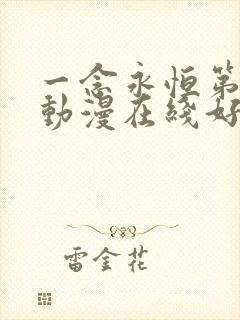 一念永恒第
動漫在綫好
雷金花